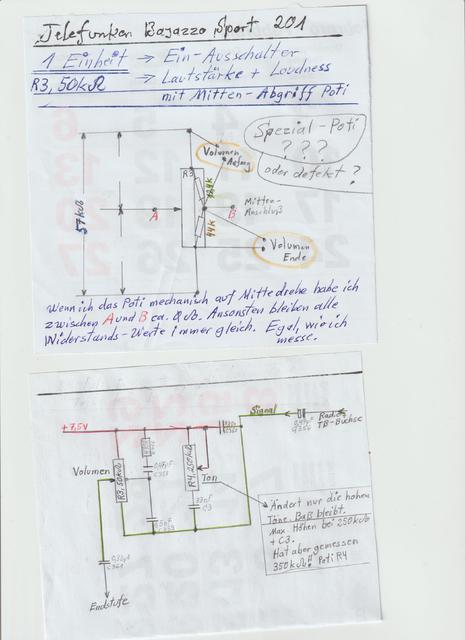 Telefunken Bajazzo Sport 201
1 Einheit → Ein-Ausschalter
R3, 50kΩ → Lautstärke + Loudness
mit Mitten-Abgriff Poti
Spezial-Poti
? ? ?
oder defekt?
Volumen
Anfang
R3
57kΩ
A
B
Mitten-
Anschluß
44k
Volumen
Ende
Wenn ich das Poti mechanisch auf Mitte drehe habe ich
zwischen A und B ca. 0Ω. Ansonsten bleiben alle
Widerstands-Werte immer gleich. Egal, wie ich
messe.
Signal
Radio
TB-Buchse
+7,5V
Volumen
R3, 50kΩ
R4, 250kΩ
Ton
C3
Endstufe
Ändert nur die hohen
Töne. Baß bleibt.
Max. Höhen bei 250kΩ
+ C3.
Hat aber gemessen
350kΩ!! Poti R4